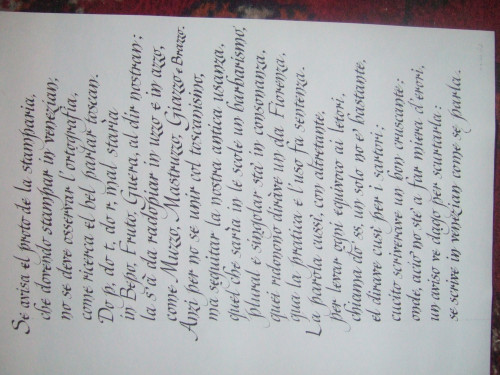 Se avisa el proto de la stamparia,
che dovendo stampar in venezian,
no se deve osservar l'ortografia,
come ricerca el bel parlar toscan.
Do p, do t, do r, mal staria
in Bepo, Fruto, Guera, al dir nostran;
la s'à da radopiar in uzzo e in azzo,
come Muzzo, Mastruzzo, Giazzo e Brazzo.
Anzi per no se unir col toscanismo,
ma seguitar la nostra antica usanza,
quel che saria in le scole un barbarismo,
plural e singolar sta' in consonanza,
quei ridemo dirave un da Fiorenza,
qua la pratica e l'uso fa sentenza.
La parola cussì, con altretante,
per levar ogni equivoco ai letori,
chiama do ss, un solo no e' bastante,
el dirave cusì per i sartori;
cucito scriverave un bon cruscante;
onde, aciò no ste' a far miera d'erori,
un aviso ve dago per scurtarla:
se scrive in venezian come se parla.